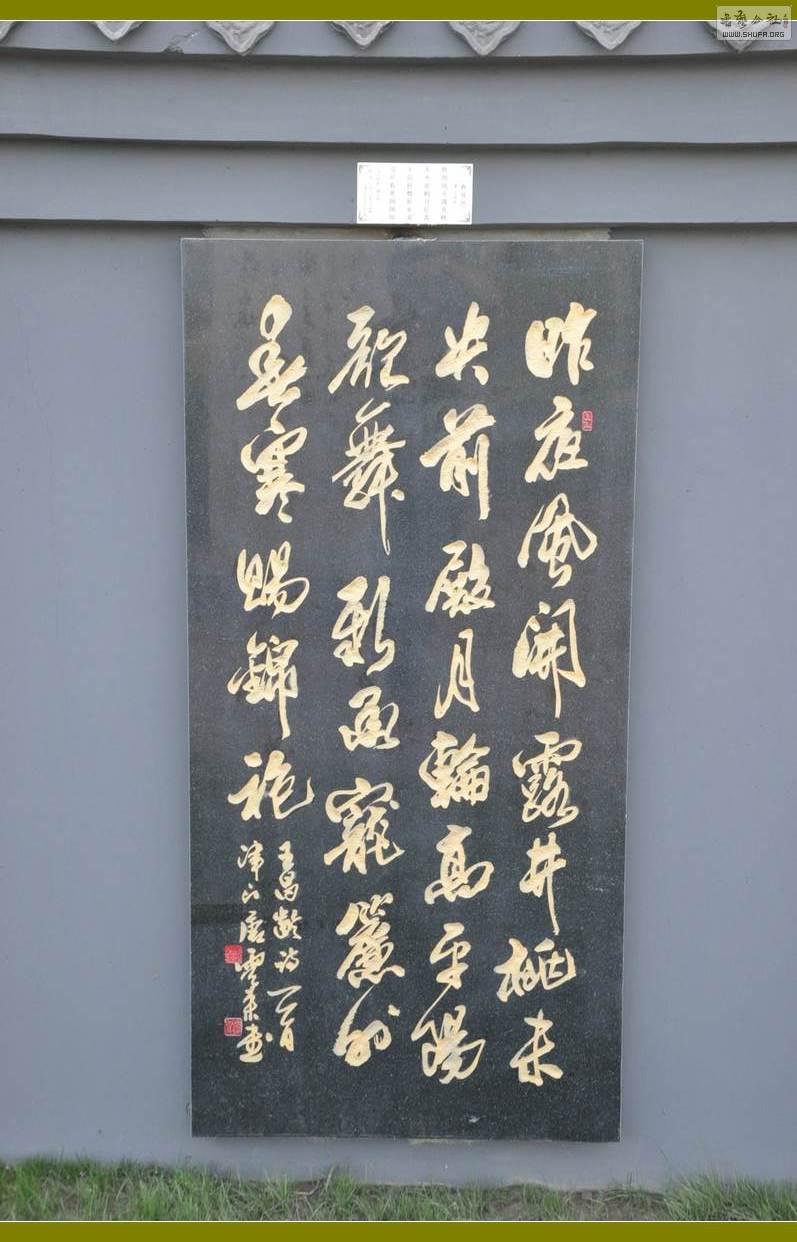 书艺公社
WWW.SHUFA.ORG
昨夜風開露井桃未
央前殿月輪高平陽
歌舞新承寵簾外
春寒賜錦袍
王昌齡詩一首
津门唐雲来書